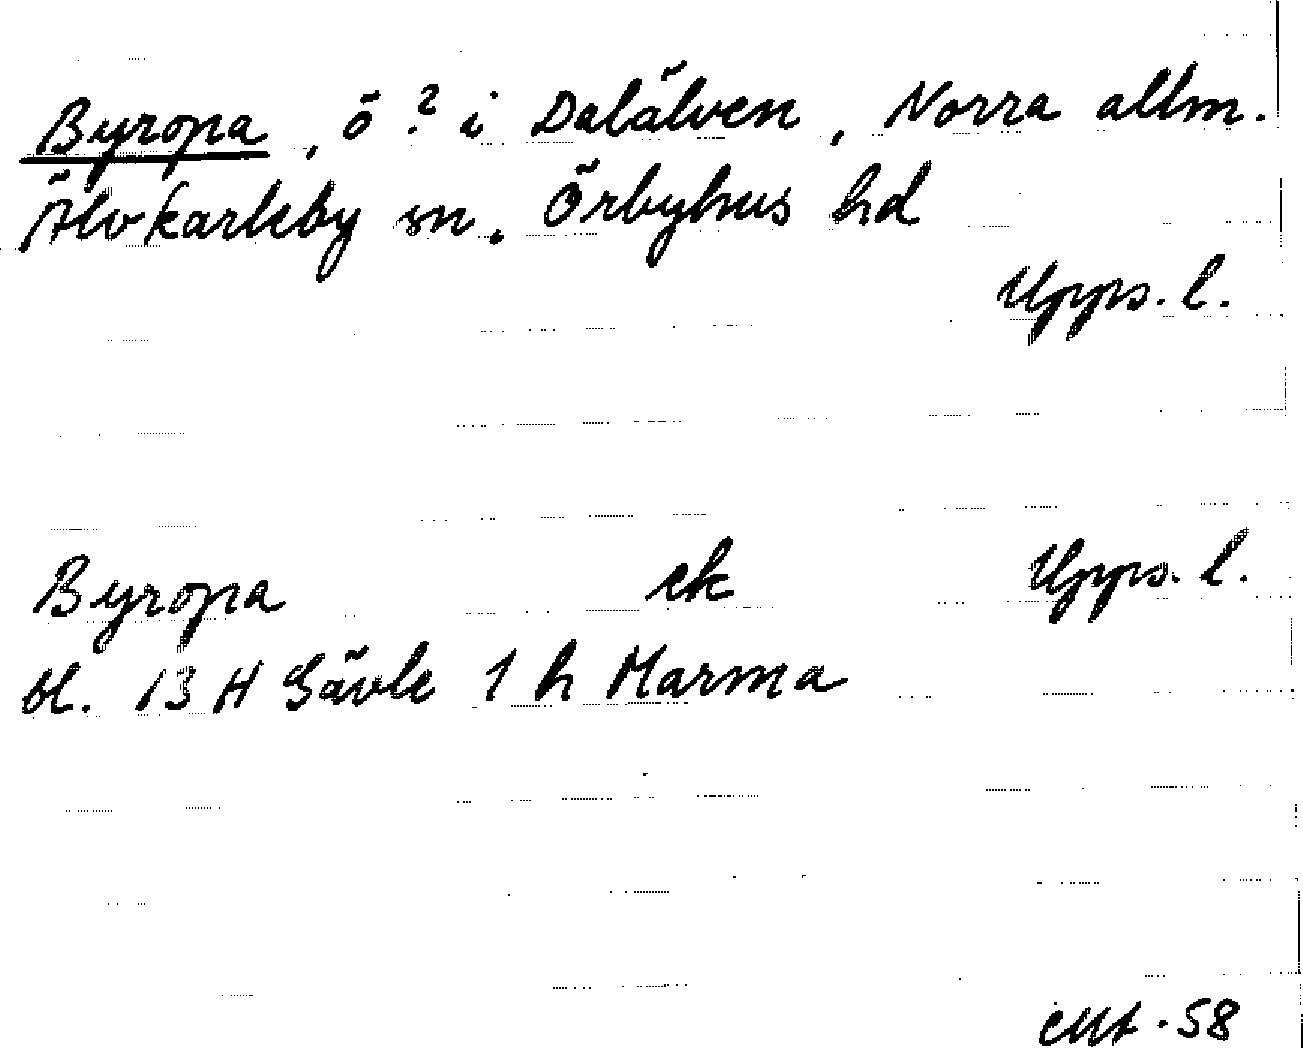 Byropa, ö? i Dalälven, Norra allm.
Älvkarleby sn. Örbyhus hd
Upps. l.
Byropa ek Upps. l.
bl. 13 H Gävle 1 h Marma
58